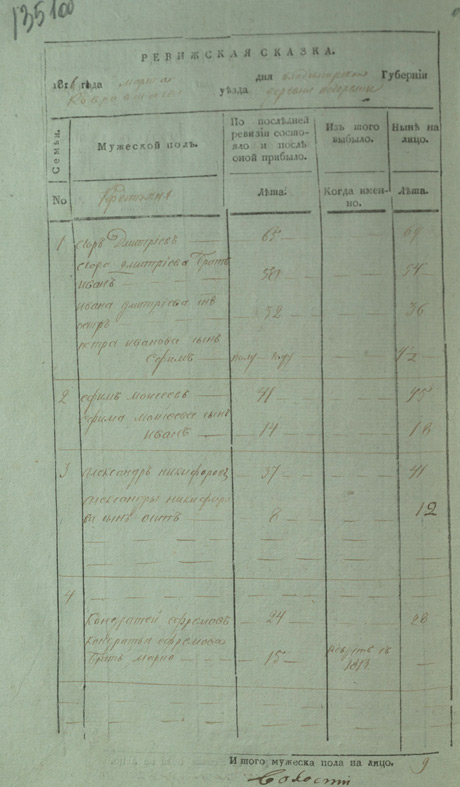 135 100
РЕВИЖСКАЯ СКАЗКА.
1816 года марта дня владимирской Губернiи
уѣзда деревни
Семьи.
Мужеской полъ.
По послѣдней ревизiи состояло и послѣ оной прибыло.
Изъ того выбыло.
Нынѣ на лицо.
No
Крестьяня
Лѣта:
Когда именно.
Лѣта.
1 Дмитрiевъ — 65 — — 69
дмитрiева братъ
иванъ — 50 — — 54
ивана дмитрiева сынъ
петръ — 32 — — 36
петра иванова сынъ
ефимъ — полу году — 4 1/2
2 ефимъ моисеевъ — 41 — — 45
ефима моисеева сынъ
иванъ — 14 — — 18
3 александръ никифоровъ 37 — — 41
александры никифорова сынъ осипъ — 8 — — 12
4
Кондратей ефремовъ 24 — — 28
кондратья ефремова
братъ марко — 15 — рекрутъ въ 1813 —
Итого мужеска пола на лицо. 9
Волости